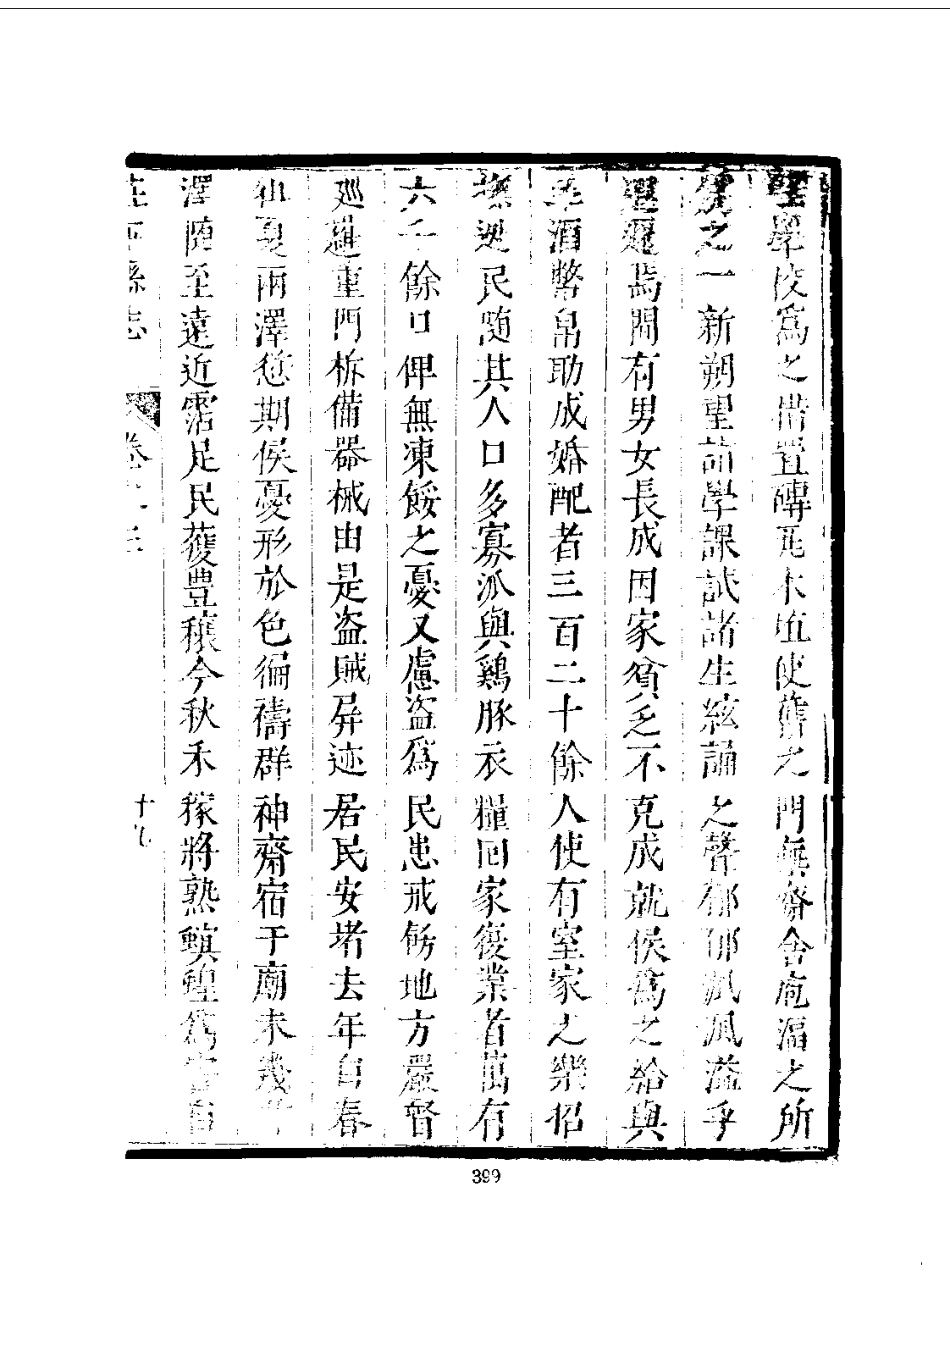 學校爲之措置磚瓦木植使舊之門無齋舍庖湢之所
之一新朔望詣學課試諸生絃誦之聲郁郁渢渢溢乎
遐邇焉間有男女長成因家貧乏不克成就侯爲之給與
羊酒幣帛助成婚配者三百二十餘人使有室家之樂招
撫逃民随其人口多寡派與鷄豚衣糧回家復業者萬有
六千餘口俾無凍餒之憂又慮盗爲民患戒飭地方嚴督
廵邏重門柝備器械由是盗賊屏迹居民安堵去年自春
徂夏雨澤愆期侯憂形於色徧禱群神齋宿于廟未幾
澤随至遠近霑足民獲豊穰今秋禾稼將熟螟蝗爲害
縣志
卷
十九
399